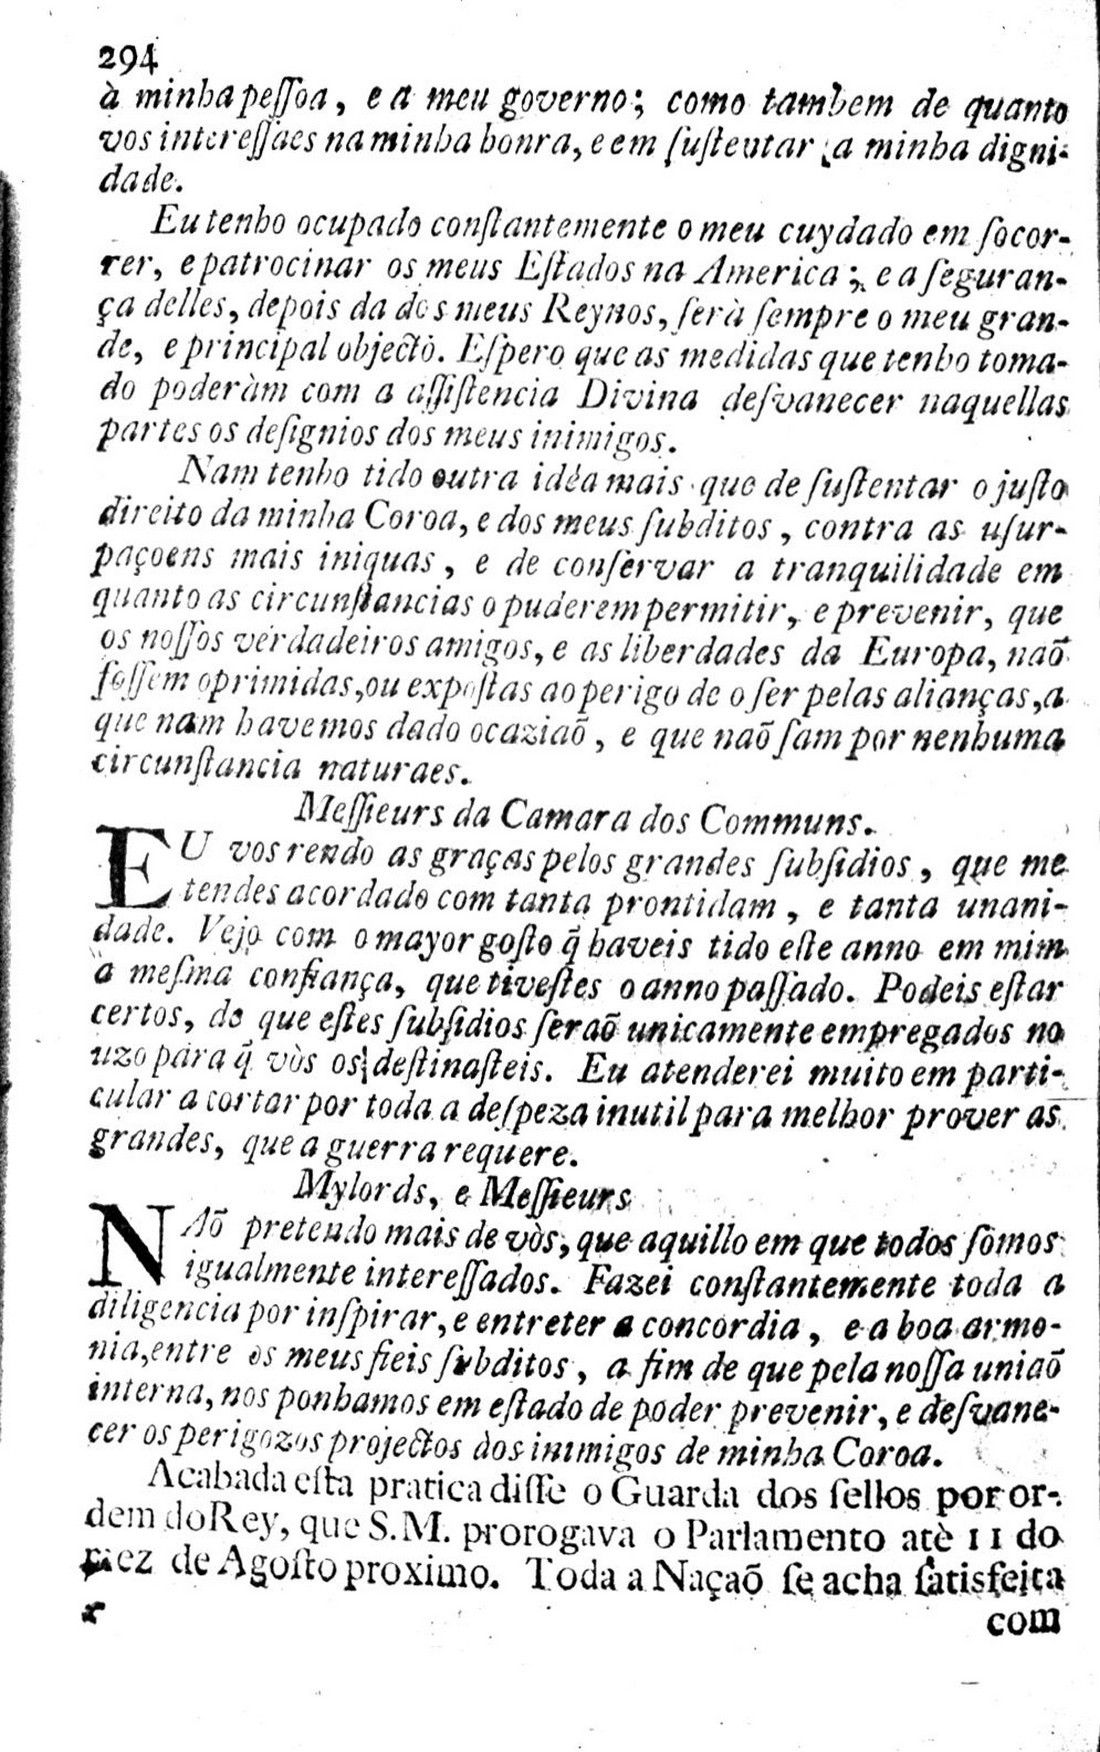 294
à minha peſſoa, e a meu governo; como tambem de quanto
vos intereſſaes na minha honra, e em ſuſtentar a minha digni-
dade.
Eu tenho ocupado conſtantemente o meu cuydado em ſocor-
rer, e patrocinar os meus Eſtados na America; e a ſeguran-
ça delles, depois da dos meus Reynos, ſerà ſempre o meu gran-
de, e principal objectò. Eſpero que as medidas que tenho toma-
do poderàm com a aſſiſtencia Divina deſvanecer naquellas
partes os deſignios dos meus inimigos.
Nam tenho tido outra idéa mais que de ſuſtentar o juſto
direito da minha Coroa, e dos meus ſubditos, contra as uſur-
paçoens mais iniquas, e de conſervar a tranquilidade em
quanto as circunſtancias o puderem permitir, e prevenir, que
os noſſos verdadeiros amigos, e as liberdades da Europa, naõ
foſſem oprimidas, ou expoſtas ao perigo de o ſer pelas alianças, a
que nam havemos dado ocaziaõ, e que naõ ſam por nenhuma
circunſtancia naturaes.
Meſſieurs da Camara dos Communs.
EU vos rendo as graças pelos grandes ſubſidios, que me
tendes acordado com tanta prontidam, e tanta unani-
dade. Vejo com o mayor goſto q̃ haveis tido eſte anno em mim
a meſma confiança, que tiveſtes o anno paſſado. Podeis eſtar
certos, de que eſtes ſubſidios ſeraõ unicamente empregados no
uzo para q̃ vòs os deſtinaſteis. Eu atenderei muito em parti-
cular a cortar por toda a deſpeza inutil para melhor prover as
grandes, que a guerra requere.
Mylords, e Meſſieurs
NAõ pretendo mais de vòs, que aquillo em que todos ſomos
igualmente intereſſados. Fazei conſtantemente toda a
diligencia por inſpirar, e entreter a concordia, e a boa armo-
nia, entre os meus fieis ſubditos, a fim de que pela noſſa uniaõ
interna, nos ponhamos em eſtado de poder prevenir, e deſvane-
cer os perigozos projectos dos inimigos de minha Coroa.
Acabada eſta pratica diſſe o Guarda dos ſellos por or-
dem do Rey, que S.M. prorogava o Parlamento atè 11 do
mez de Agoſto proximo. Toda a Naçaõ ſe acha ſatisfeita
com